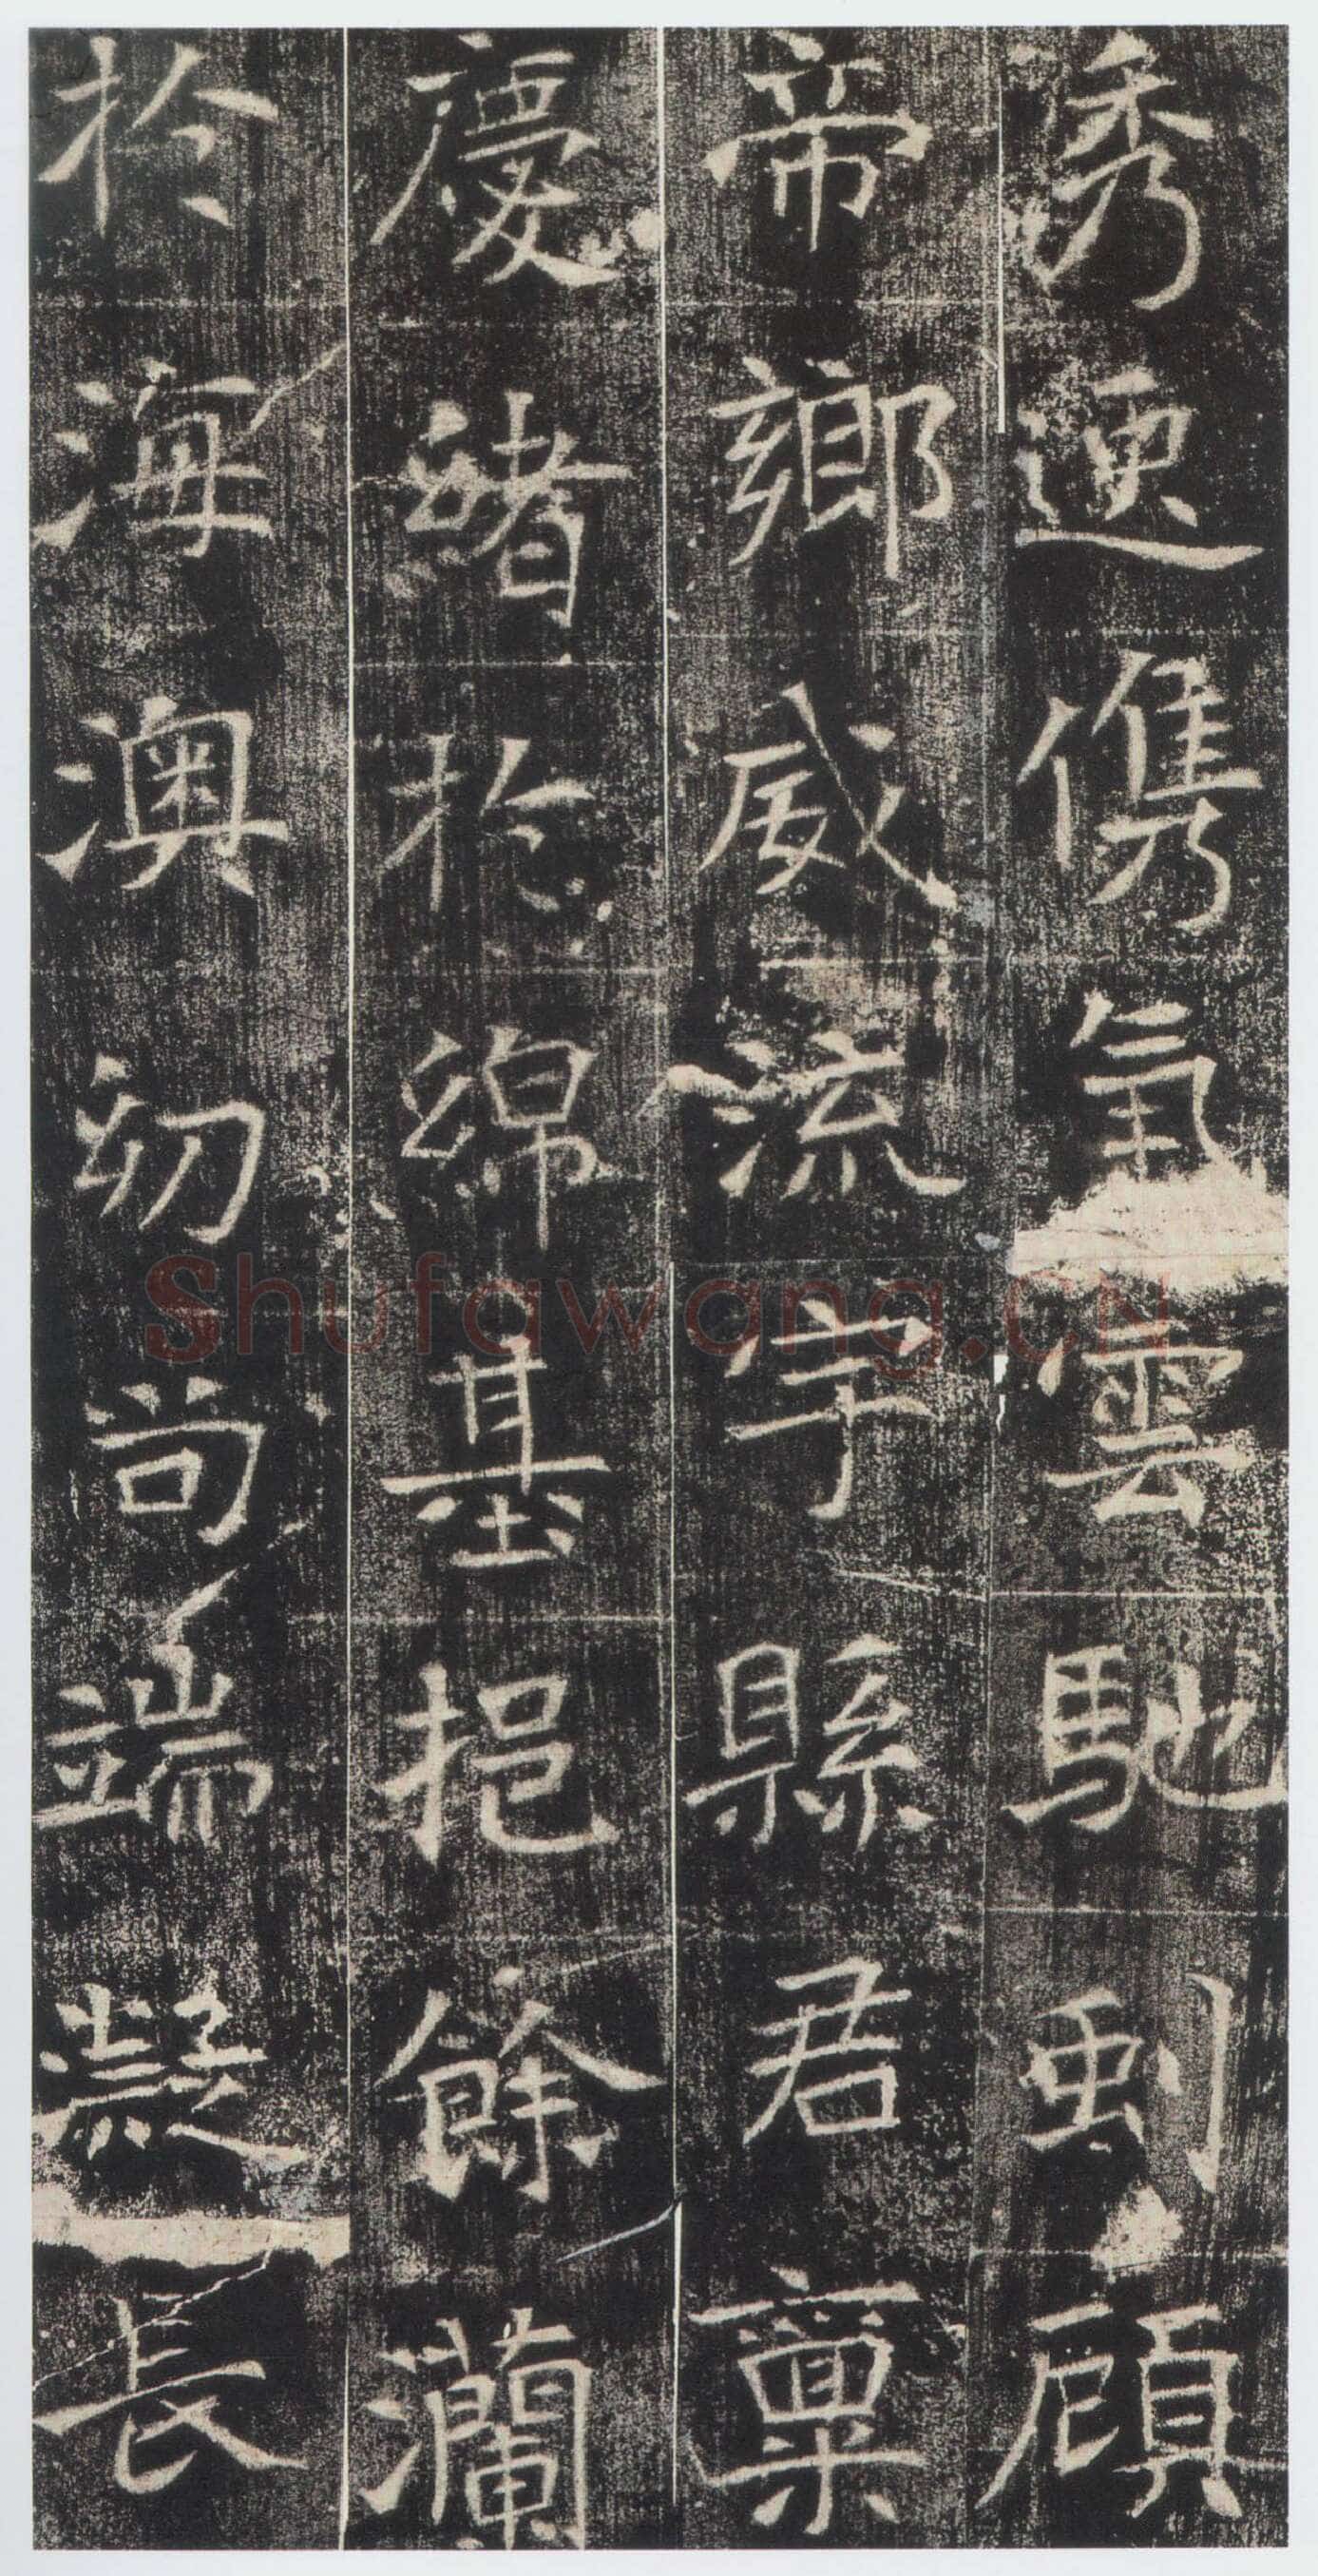 秀儁氣雲馳顧
帝鄉威流宇縣君稟
慶緒於綿基挹餘瀾
於海澳幼尚端凝長
Shufawang.CN